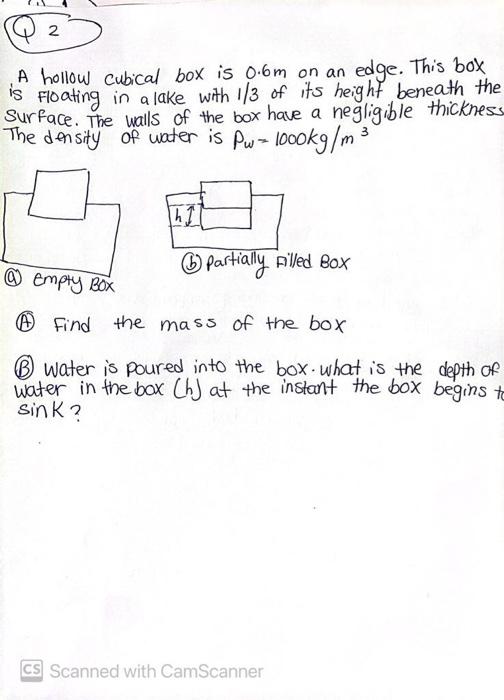 Q 2
A hollow cubical box is 0.6m on an edge. This box
is Floating in a lake with 1/3 of its height beneath the
Surface. The walls of the box have a negligible thickness
The density of water is Pw = 1000kg/m³
h
(a) empty Box
(b) partially Filled Box
(A) Find the mass of the box
(B) Water is poured into the box. what is the depth of
water in the box (h) at the instant the box begins to
sink?
CS Scanned with CamScanner